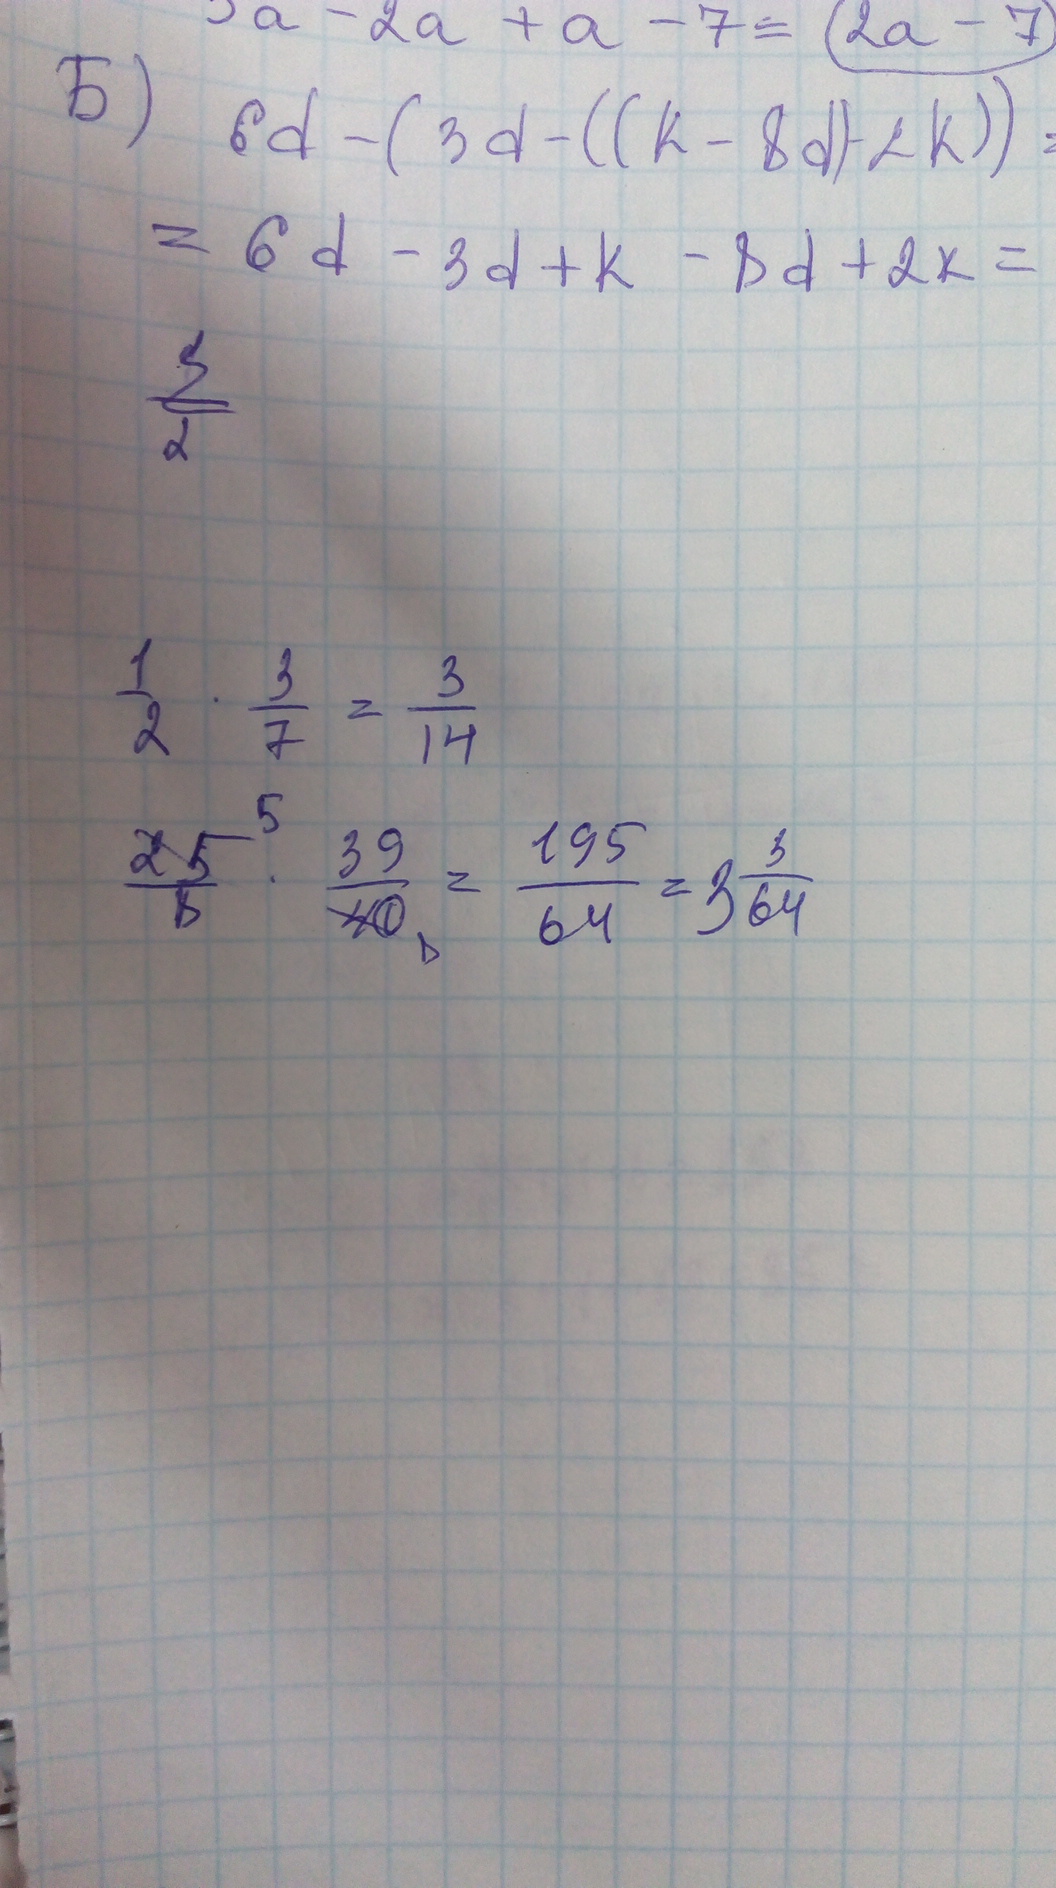 3a - 2a + a - 7 = (2a - 7)
Б) 6d - (3d - ((k - 8d) - 2k)) =
= 6d - 3d + k - 8d + 2k =
2
1/2 · 3/7 = 3/14
25/8 5 · 39/40 8 = 195/64 = 3 3/64